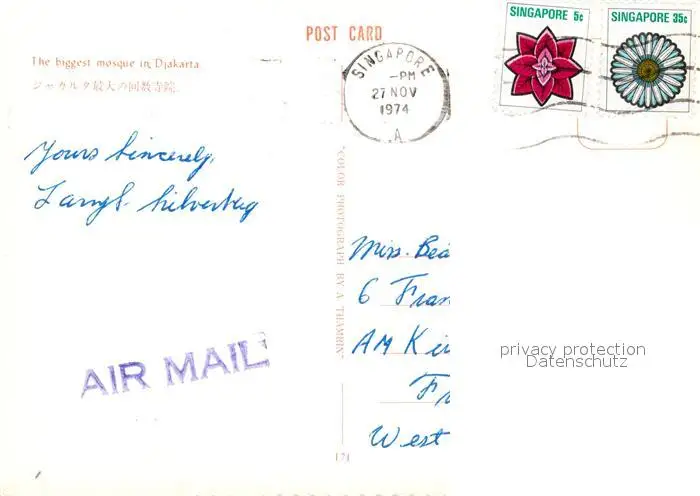 POST CARD
SINGAPORE 5c
SINGAPORE 35c
The biggest mosque in Djakarta.
ジャカルタ最大の回教寺院.
SINGAPORE
-PM
27 NOV
1974
A
Yours Sincerely,
"COLOR PHOTOGRAPH BY A. THAMBIN"
Miss. Bea
6 Fran
AM Ki
privacy protection
Datenschutz
AIR MAIL
West
171